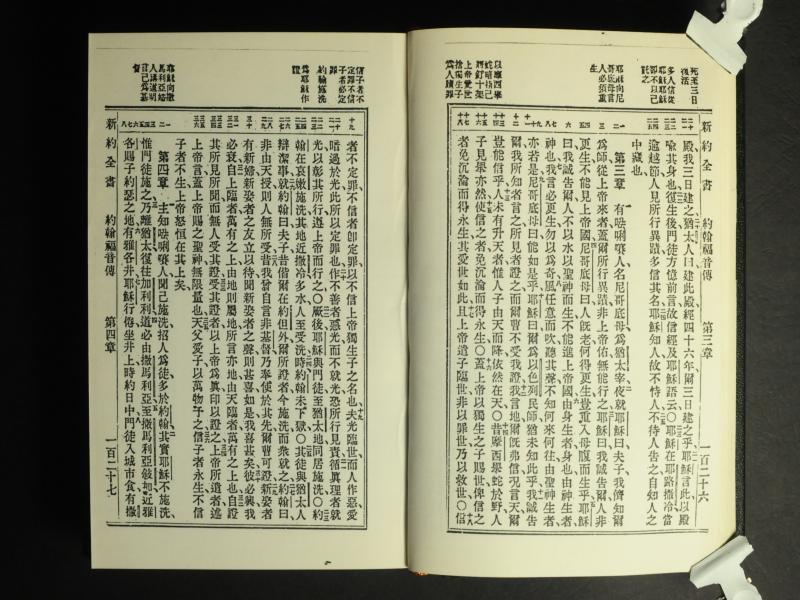 新約全書 約翰福音傳 第三章 一百二十六
死至三日
復活
多人信從
耶穌耶穌
卻不以己
託之
耶穌向尼
哥底母言
人必須重
生
以摩西舉
蛇喻指己
將釘十架
上帝愛世
捨獨生子
為人贖罪
殿我三日建之猶太人曰建此殿經四十六年爾三日建之乎耶穌言此以殿
喻其身也復生後門徒方憶前言故信經及耶穌語云○耶穌在耶路撒冷當
逾越節人見所行異蹟多信其名耶穌知人故不恃人不待人告之自知人之
中藏也
第三章 有𠵽唎㘔人名尼哥底母為猶太宰夜就耶穌曰夫子我儕知爾
為師從上帝來者蓋爾所行異蹟非上帝佑無能行之耶穌曰我誠告爾人非
更生不能見上帝國尼哥底母曰人既老何得更生豈重入母腹而生乎耶穌
曰我誠告爾人不以水以聖神而生不能進上帝國由身生者身也由神生者
神也我言必更生勿以為奇風任意而吹聽其聲不知何來何往由聖神生者
亦若是尼哥底母曰能如是乎耶穌曰爾為以色列民師猶未知此乎我誠告
爾我所知者言之所見者證之而爾曹不受我證我言地爾既弗信況言天爾
豈能信乎人未有升天者惟人子由天而降依然在天○昔摩西舉蛇於野人
子見舉亦然使信之者免沉淪而得永生○蓋上帝以獨生之子賜世俾信之
者免沉淪而得永生其愛世如此且上帝遣子臨世非以罪世乃以救世○信
新約全書 約翰福音傳 第四章 一百二十七
信子者不
定罪不信
子者必定
罪
約翰施洗
為耶穌作
證
耶穌向撒
馬利亞婦
人講道明
言己為基
督
者不定罪不信者卽定罪以不信上帝獨生子之名也夫光臨世而人作惡愛
暗過於光此所以定罪也作不善者惡光而不就光恐所行見責循真理者就
光以彰其所行遵上帝而行之○厥後耶穌與門徒至猶太地同居施洗○約
翰在哀嫩施洗其地近撒冷多水人至受洗時約翰未下獄○其徒與猶太人
辯潔事就約翰曰夫子昔偕爾在約但外爾所證者今施洗而衆就之約翰曰
非由天授則人無所受昔我曾自言非基督乃奉使於其先爾曹可證新娶者
有新婦新娶者之友立以待聞新娶者之聲則甚喜如是我喜甚矣彼必興我
必衰自上臨者萬有之上由地則屬地所言亦地由天臨者萬有之上也自證
其所見所聞而無人受其證受其證者以上帝為眞印以證之上帝所遣者述
上帝言蓋上帝賜之聖神無限量也天父愛子以萬物予之信子者永生不信
子者不生上帝怒恒在其上矣
第四章 主知𠵽唎㘔人聞己施洗招人為徒多於約翰其實耶穌不施洗
惟門徒施之乃離猶太復往加利利道必由撒馬利亞至撒馬利亞敘加近雅
各賜子約瑟之地有雅各井耶穌行倦坐井上時約日中門徒入城市食有撒